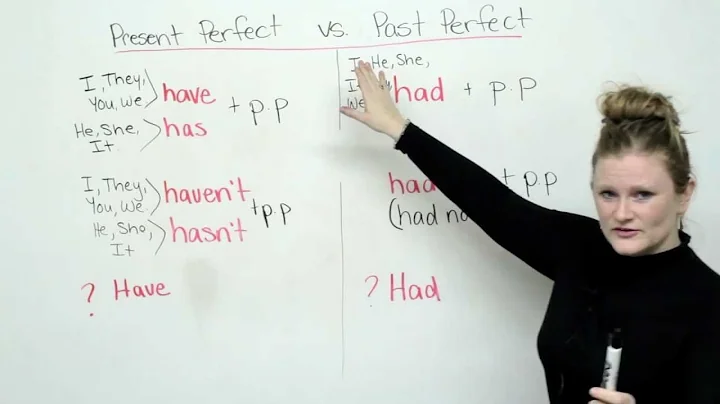 Present Perfect vs. Past Perfect
I, They,
You, We
have
He, She,
It
has
+ p.p
I, They,
You, We
haven't
He, She,
It
hasn't
+p.p
? Have
I, He, She,
had + p.p
had + p.p
(had
? Had